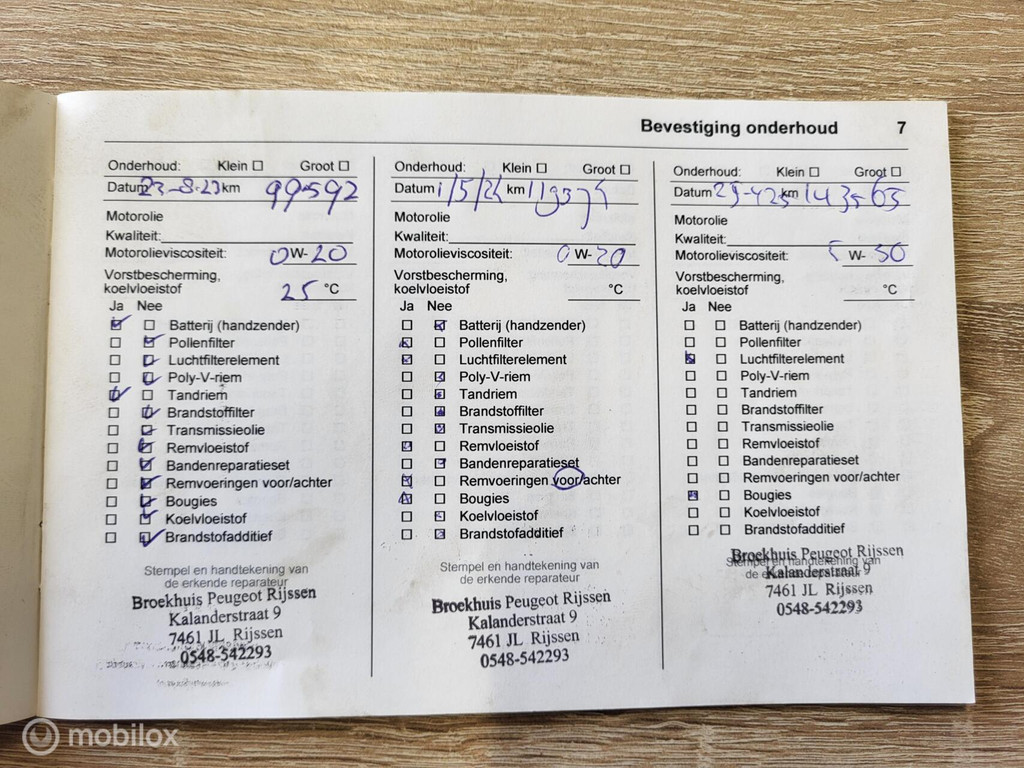 Bevestiging onderhoud 7
Onderhoud: Klein ☐ Groot ☐
Datum 23-8-23 km 99592
Motorolie
Kwaliteit:
Motorolieviscositeit: 0W-20
Vorstbescherming,
koelvloeistof 25 °C
Ja Nee
Batterij (handzender)
Pollenfilter
Luchtfilterelement
Poly-V-riem
Tandriem
Brandstoffilter
Transmissieolie
Remvloeistof
Bandenreparatieset
Remvoeringen voor/achter
Bougies
Koelvloeistof
Brandstofadditief
Stempel en handtekening van
de erkende reparateur
Broekhuis Peugeot Rijssen
Kalanderstraat 9
7461 JL Rijssen
0548-542293
Onderhoud: Klein ☐ Groot ☐
Datum 1/5/24 km
Motorolie
Kwaliteit:
Motorolieviscositeit: 0W-20
Vorstbescherming,
koelvloeistof °C
Ja Nee
Batterij (handzender)
Pollenfilter
Luchtfilterelement
Poly-V-riem
Tandriem
Brandstoffilter
Transmissieolie
Remvloeistof
Bandenreparatieset
Remvoeringen voor/achter
Bougies
Koelvloeistof
Brandstofadditief
Stempel en handtekening van
de erkende reparateur
Broekhuis Peugeot Rijssen
Kalanderstraat 9
7461 JL Rijssen
0548-542293
Onderhoud: Klein ☐ Groot ☐
Datum km
Motorolie
Kwaliteit:
Motorolieviscositeit: W-30
Vorstbescherming,
koelvloeistof °C
Ja Nee
Batterij (handzender)
Pollenfilter
Luchtfilterelement
Poly-V-riem
Tandriem
Brandstoffilter
Transmissieolie
Remvloeistof
Bandenreparatieset
Remvoeringen voor/achter
Bougies
Koelvloeistof
Brandstofadditief
Stempel en handtekening van
de erkende reparateur
Broekhuis Peugeot Rijssen
Kalanderstraat 9
7461 JL Rijssen
0548-542293
mobilox